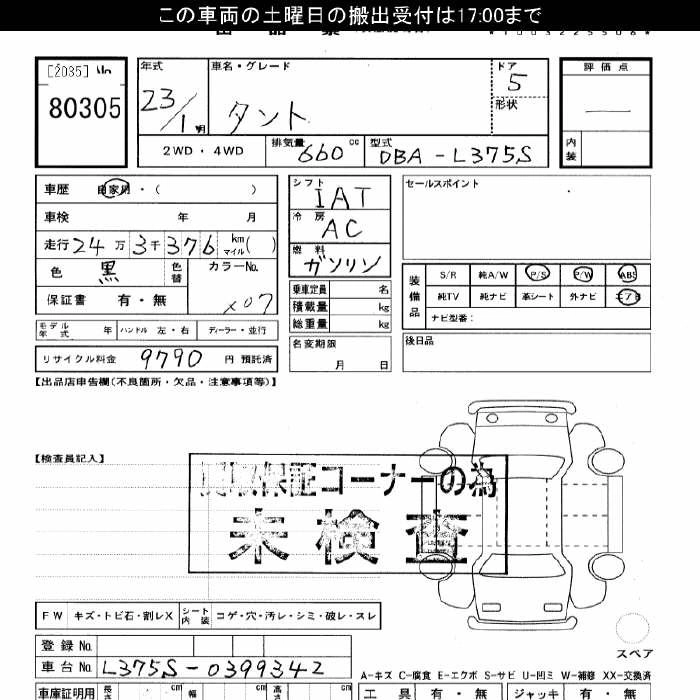 この車両の土曜日の搬出受付は17:00まで
[2035] No
80305
年式 23/1 明
車名・グレード タント
ドア 5
形状
評価点 —
内装
2WD・4WD
排気量 660 cc
型式 DBA-L375S
車歴 自家用・( )
車検 年 月
走行 24万 3千 376 km マイル( )
色 黒 色替 カラーNo. X07
保証書 有・無
シフト IAT
冷房 AC
燃料 ガソリン
乗車定員 名
積載量 kg
総重量 kg
名変期限
月 日
セールスポイント
装備品
S/R 純A/W P/S P/W ABS
純TV 純ナビ 革シート 外ナビ エアB
ナビ型番:
後日品
モデル年式 年 ハンドル 左・右 ディーラー・並行
リサイクル料金 9790 円 預託済
【出品店申告欄(不良箇所・欠品・注意事項等)】
【検査員記入】
保証コーナーの為
未検査
FW キズ・トビ石・割レX シート内装 コゲ・穴・汚レ・シミ・破レ・スレ
スペア
登録 No.
車台 No. L375S-0399342
A-キズ C-腐食 E-エクボ S-サビ U-凹ミ W-補修 XX-交換済
車庫証明用 長さ cm 幅 cm 高さ cm
工具 有・無 ジャッキ 有・無